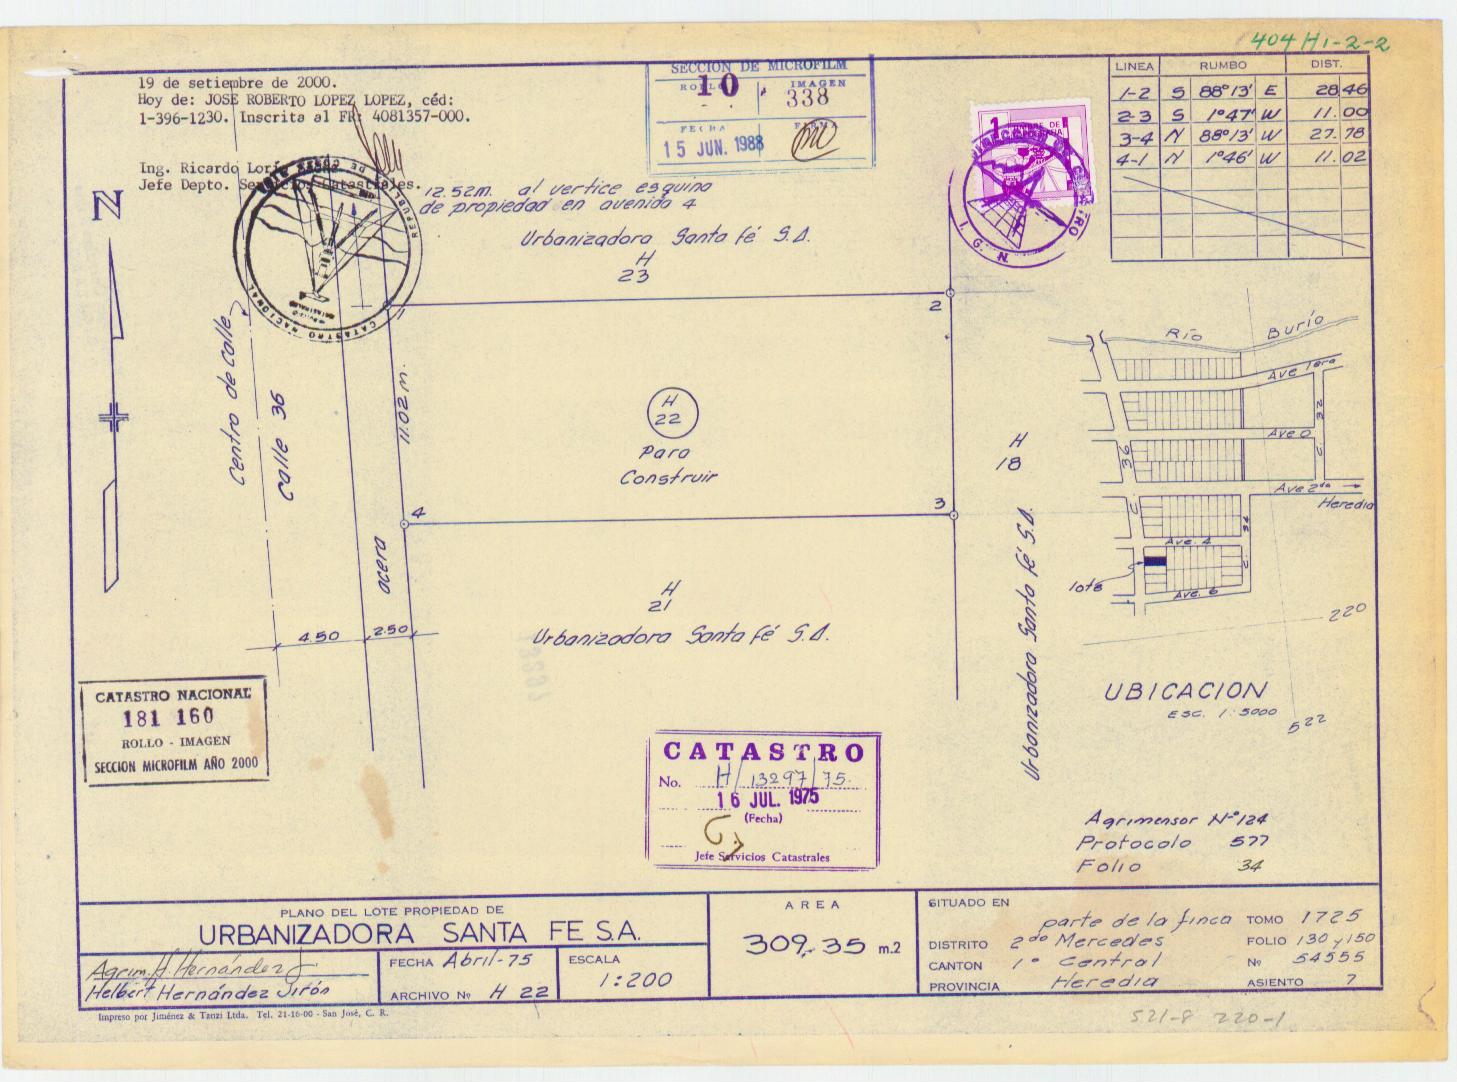 404 H1-2-2
19 de setiembre de 2000.
Hoy de: JOSE ROBERTO LOPEZ LOPEZ, céd:
1-396-1230. Inscrita al FR: 4081357-000.
Ing. Ricardo
Jefe Depto. Servicios Catastrales.
SECCION DE MICROFILM
ROLLO IMAGEN
10 338
FECHA FIRMA
15 JUN. 1988
LINEA RUMBO DIST.
1-2 S 88°13' E 28 46
2-3 S 1°47' W 11. 00
3-4 N 88°13' W 27. 78
4-1 N 1°46' W 11. 02
12.52m. al vertice esquina
de propiedad en avenida 4
Urbanizadora Santa fé S.A.
H
23
REPUBLICA DE COSTA RICA
CATASTRO NACIONAL
DIRECCION DE CATASTRO
I. G. N.
N
1
2
Centro de calle
Calle 36
11.02 m.
H
22
Para
Construir
H
18
Urbanizadora Santa fé S.A.
4
3
acera
H
21
Urbanizadora Santa fé S.A.
4.50
2.50
Río Burío
Ave 1era
C. 32
Ave 0
C 36
Ave 2da
Heredia
C. 34
Ave. 4
lote
Ave. 6
220
522
UBICACION
ESC. 1:5000
CATASTRO NACIONAL
181 160
ROLLO - IMAGEN
SECCION MICROFILM AÑO 2000
CATASTRO
No. H/13297/75.
16 JUL. 1975
(Fecha)
Jefe Servicios Catastrales
Agrimensor Nº124
Protocolo 577
Folio 34
PLANO DEL LOTE PROPIEDAD DE
URBANIZADORA SANTA FE S.A.
Agrim. H. Hernández J
Helbert Hernández Jirón
FECHA Abril-75
ARCHIVO Nº H 22
ESCALA
1:200
AREA
309.35 m.2
SITUADO EN
parte de la finca
DISTRITO 2do Mercedes
CANTON 1º Central
PROVINCIA Heredia
TOMO 1725
FOLIO 130 y 150
Nº 54555
ASIENTO 7
Impreso por Jiménez & Tanzi Ltda. Tel. 21-16-00 - San José, C. R.
521-8 220-1